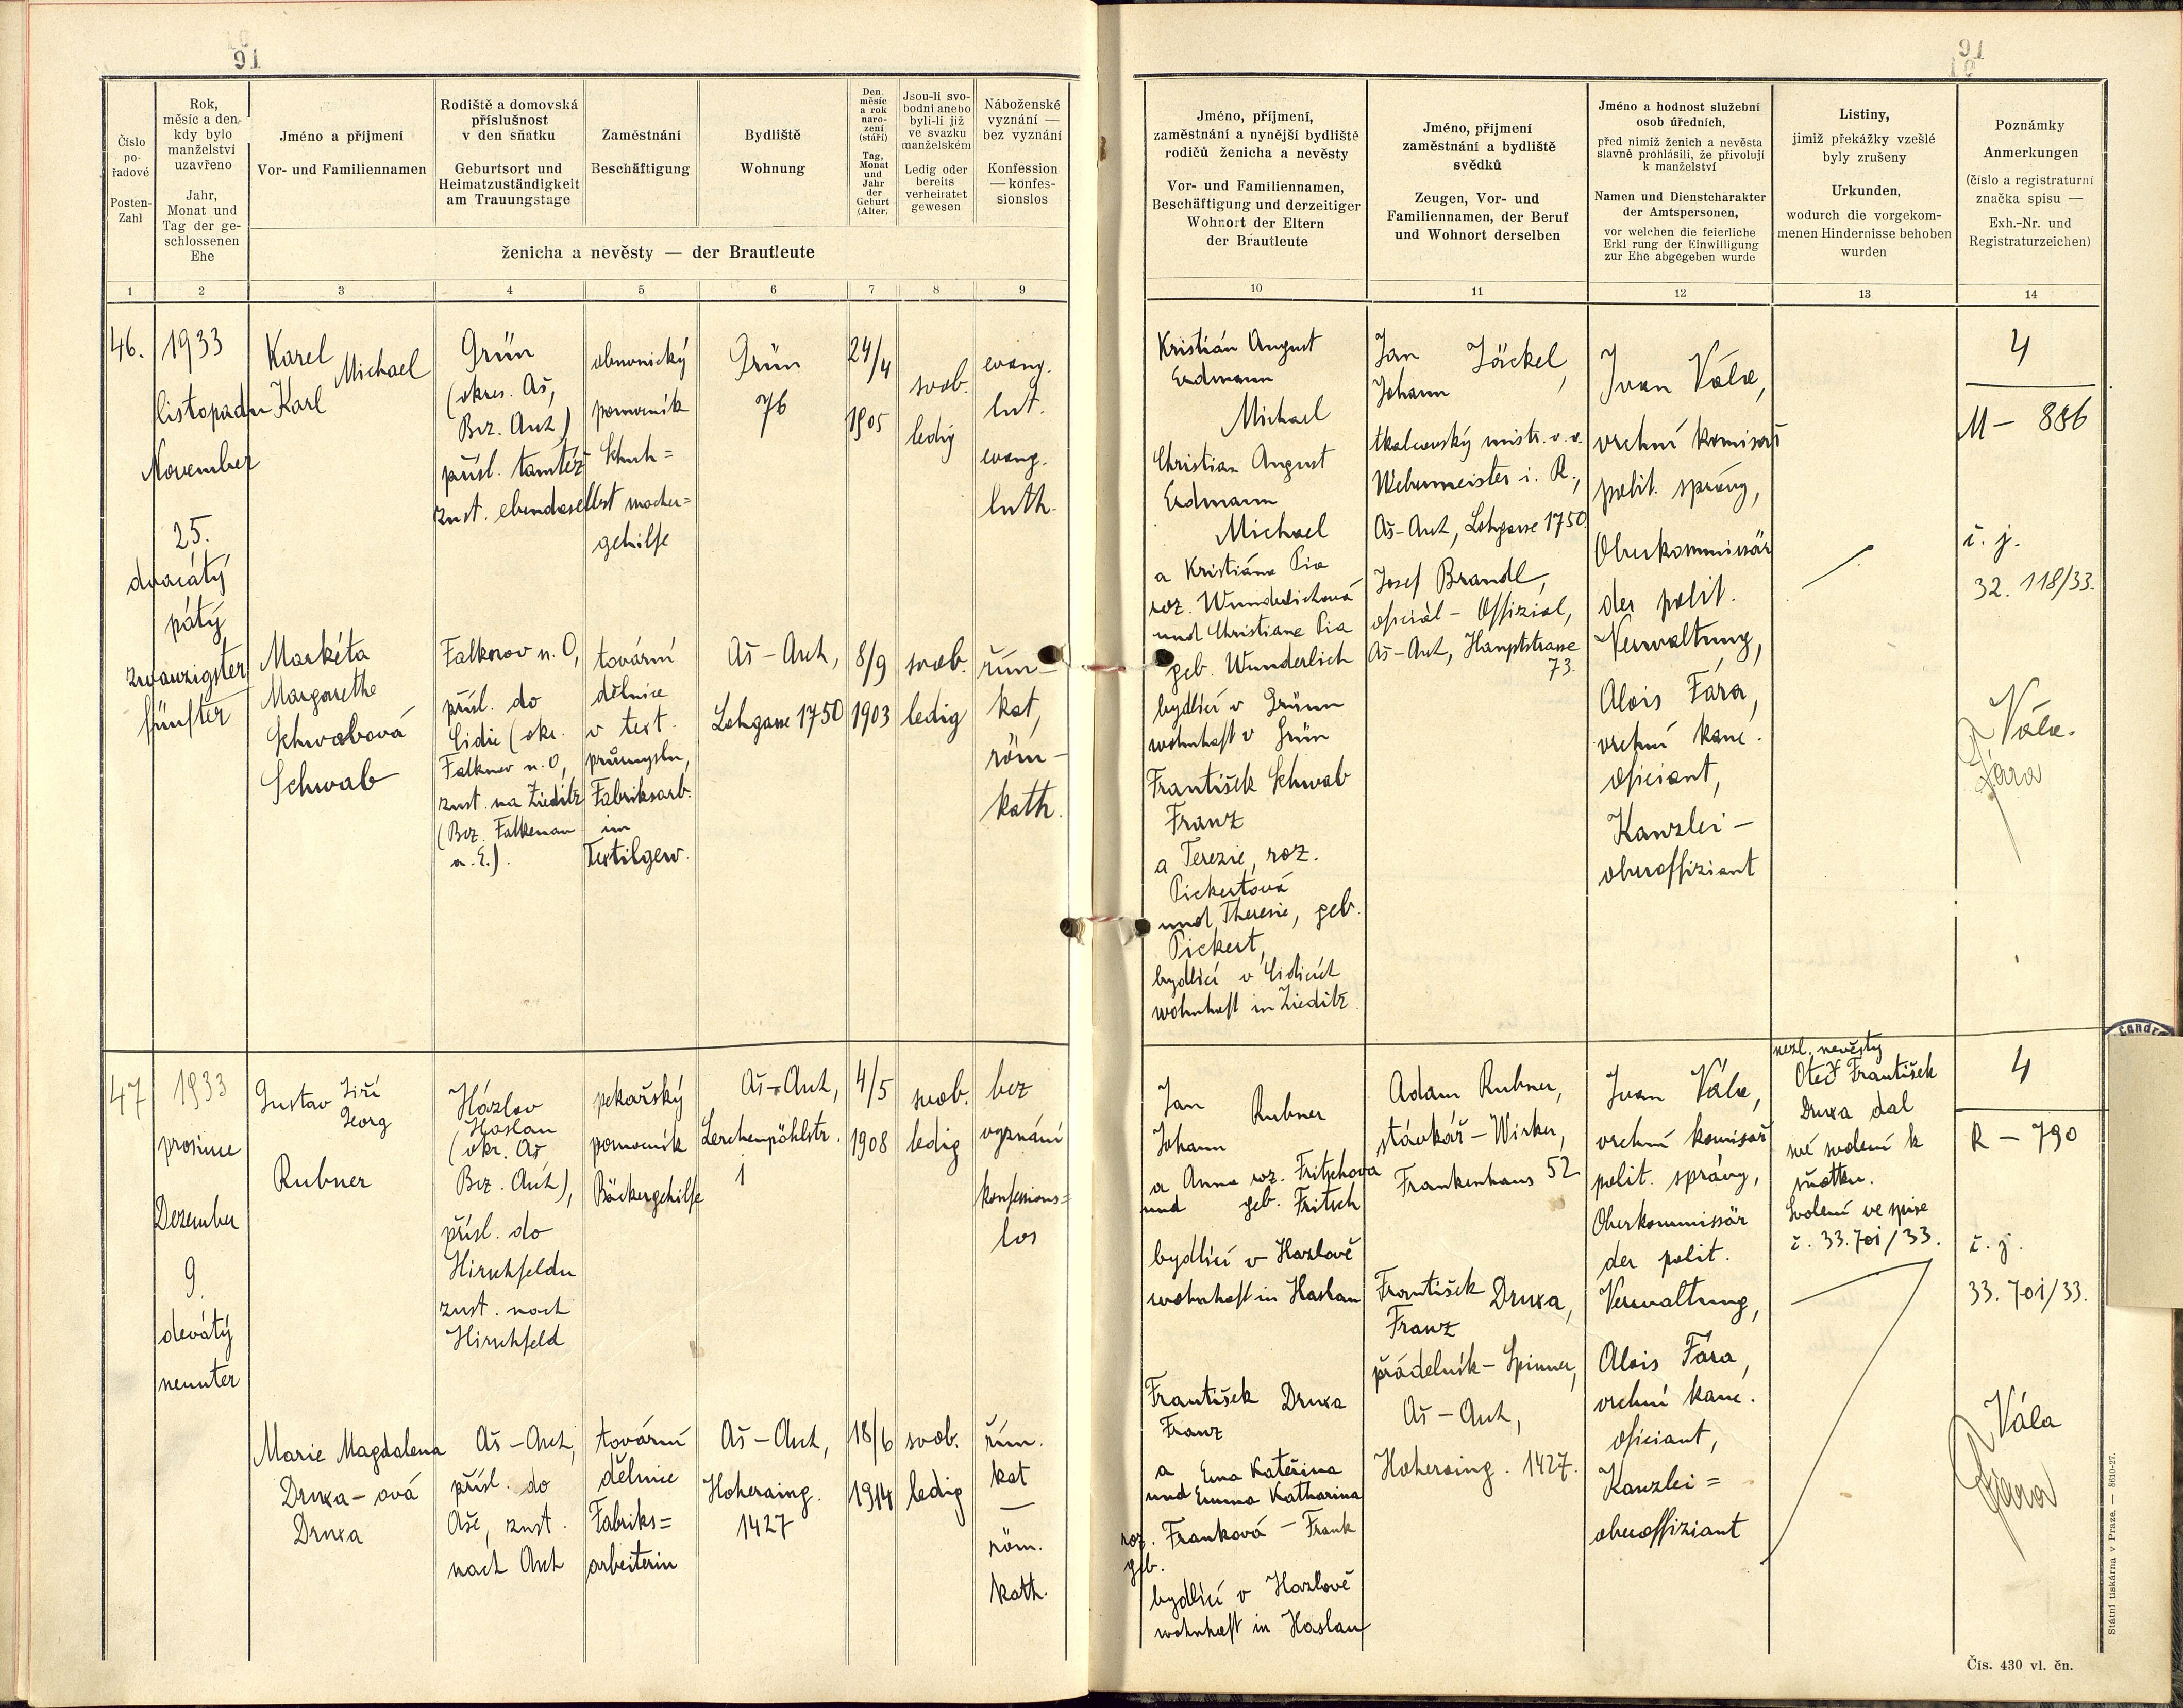 91
91
Číslo
po-
řadové
Posten-
Zahl
Rok,
měsíc a den,
kdy bylo
manželství
uzavřeno
Jahr,
Monat und
Tag der ge-
schlossenen
Ehe
Jméno a příjmení
Vor- und Familiennamen
Rodiště a domovská
příslušnost
v den sňatku
Geburtsort und
Heimatzuständigkeit
am Trauungstage
Zaměstnání
Beschäftigung
Bydliště
Wohnung
Den,
měsíc
a rok
naro-
zení
(stáří)
Tag,
Monat
und
Jahr
der
Geburt
(Alter)
Jsou-li svo-
bodni anebo
byli-li již
ve svazku
manželském
Ledig oder
bereits
verheiratet
gewesen
Náboženské
vyznání —
bez vyznání
Konfession
— konfes-
sionslos
ženicha a nevěsty — der Brautleute
Jméno, příjmení,
zaměstnání a nynější bydliště
rodičů ženicha a nevěsty
Vor- und Familiennamen,
Beschäftigung und derzeitiger
Wohnort der Eltern
der Brautleute
Jméno, příjmení
zaměstnání a bydliště
svědků
Zeugen, Vor- und
Familiennamen, der Beruf
und Wohnort derselben
Jméno a hodnost služební
osob úředních,
před nimiž ženich a nevěsta
slavně prohlásili, že přivolují
k manželství
Namen und Dienstcharakter
der Amtspersonen,
vor welchen die feierliche
Erkl rung der Einwilligung
zur Ehe abgegeben wurde
Listiny,
jimiž překážky vzešlé
byly zrušeny
Urkunden,
wodurch die vorgekom-
menen Hindernisse behoben
wurden
Poznámky
Anmerkungen
(číslo a registraturní
značka spisu —
Exh.-Nr. und
Registraturzeichen)
1 2 3 4 5 6 7 8 9 10 11 12 13 14
46.
1933
listopadu
November
25.
dvacátý
pátý
zwanzigster
fünfter
Karel
Michael
Karl
Grün
(okres. Aš,
Bez. Asch)
přísl. tamtéž
zust. ebendaselbst
obuvnický
pomocník
Schuh=
macher=
gehilfe
Grün
76
24/4
1905
svob.
ledig
evang.
lut.
evang.
luth.
Markéta
Margarethe
Schwabová
Schwab
Falknov n. O,
přísl. do
Cidic (okr.
Falknov n. O,
zust. na Zieditz
(Bez. Falkenau
a. E.).
tovární
dělnice
v text.
průmyslu,
Fabriksarb.
im
Textilgew.
Aš-Asch,
Lohgasse 1750
8/9
1903
svob.
ledig
řím-
kat,
röm-
kath.
Kristián August
Erdmann
Michael
Christian August
Erdmann
Michael
a Kristiána Pia
roz. Wunderlichová
und Christiane Pia
geb. Wunderlich
bydlící v Grünu
wohnhaft v Grün
František Schwab
Franz
a Terezie, roz.
Pickertová
und Theresie, geb.
Pickert,
bydlící v Cidicích
wohnhaft in Zieditz
Jan
Jäckel,
Johann
tkalcovský mistr. v. v.
Webermeister i. R.,
Aš-Asch, Lohgasse 1750.
Josef Brandl,
oficiál - Offizial,
Aš-Asch, Hauptstrasse
73.
Ivan Vála,
vrchní komisař
polit. správy,
Oberkommissär
der polit.
Verwaltung,
Alois Fára,
vrchní kanc.
oficiant,
Kanzlei-
oberoffiziant
4
M - 886
č. j.
32. 118/33.
Vála.
Fára
47
1933
prosince
Dezember
9.
devátý
neunter
Gustav Jiří
Georg
Rubner
Házlov
Haslau
(okr. Aš
Bez. Asch),
přísl. do
Hirschfeldu
zust. nach
Hirschfeld
pekařský
pomocník
Bäckergehilfe
Aš-Asch,
Lerchenpöhlstr.
1
4/5
1908
svob.
ledig
bez
vyznání
konfessions=
los
Marie Magdalena
Druxa-ová
Druxa
Aš-Asch,
přísl. do
Aše, zust.
nach Asch
tovární
dělnice
Fabriks=
arbeiterin
Aš-Asch,
Hoheraing.
1427
18/6
1914
svob.
ledig
řím.
kat
—
röm.
kath.
Jan
Rubner
Johann
a Anna roz. Fritschova
und geb. Fritsch
bydlící v Hazlově
wohnhaft in Haslau
František Druxa
Franz
a Ema Kateřina
und Emma Katharina
roz. Franková - Frank
geb.
bydlící v Hazlově
wohnhaft in Haslau
Adam Rubner,
stávkař-Wirker,
Frankenhaus 52
František Druxa,
Franz
přádelník-Spinner,
Aš-Asch,
Hoheraing. 1427.
Ivan Vála,
vrchní komisař
polit. správy,
Oberkommissär
der polit.
Verwaltung,
Alois Fára,
vrchní kanc.
oficiant,
Kanzlei=
oberoffiziant
nezl. nevěsty
Otec František
Druxa dal
své svolení k
sňatku.
Svolení ve spise
č. 33.701/33.
4
R - 790
č. j.
33. 701/33.
Vála
Fára
Státní tiskárna v Praze. — 8610-27.
Čís. 430 vl. čn.